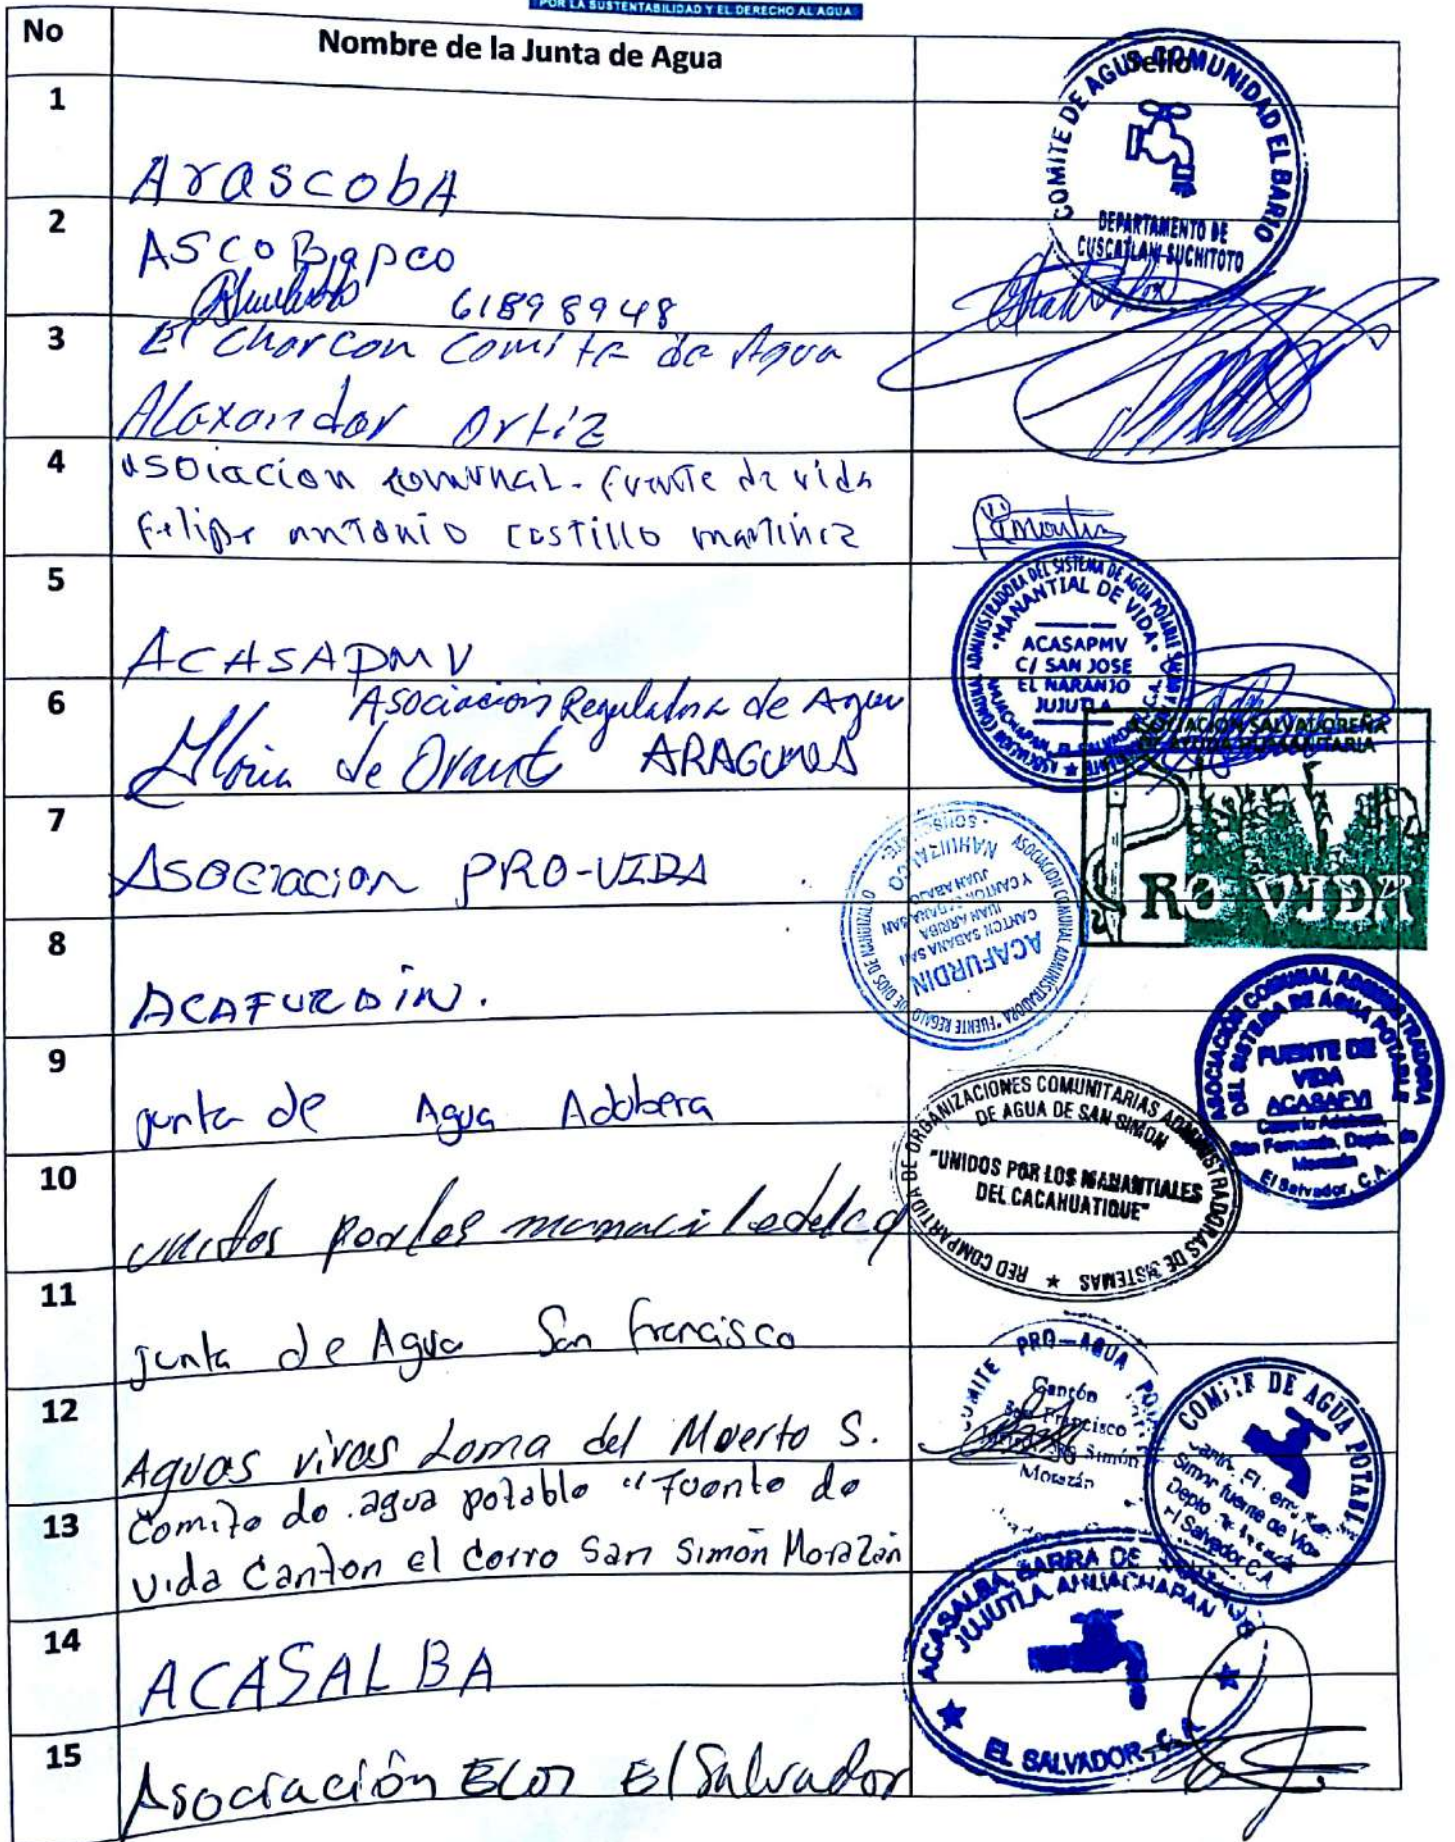 POR LA SUSTENTABILIDAD Y EL DERECHO AL AGUA
No Nombre de la Junta de Agua Sello
1 ArascobA
COMITE DE AGUA COMUNIDAD EL BARIO
DEPARTAMENTO DE
CUSCATLAN SUCHITOTO
2 ASCoBapco
61898948
3 El Charcon Comite de Agua
Alaxander Ortiz
4 asoiacion comunal. fuente de vida
Felipe antonio castillo martinez
5 ACASAPMV
ASOCIACION COMUNAL ADMINISTRADORA DEL SISTEMA DE AGUA POTABLE
"MANANTIAL DE VIDA"
ACASAPMV
C/ SAN JOSE
EL NARANJO
JUJUTLA
AHUACHAPAN, EL SALVADOR, C.A.
6 Asociacion Reguladora de Agua
Gloria de Orant ARAGUMES
ASOCIACION SALVADOREÑA
DE AYUDA HUMANITARIA
PRO VIDA
7 Asociacion PRO-VIDA
8 ACAFURDIN.
ASOCIACION COMUNAL ADMINISTRADORA "FUENTE REGALO DE DIOS DE NAHUIZALCO
ACAFURDIN
CANTON SABANA SAN
JUAN ARRIBA
Y CANTON SABANA SAN
JUAN ABAJO
NAHUIZALCO
SONSONATE
9 junta de Agua Adobera
ASOCIACIÓN COMUNAL ADMINISTRADORA
DEL SISTEMA DE AGUA POTABLE
FUENTE DE
VIDA
ACASAFVI
Caserío Adobera,
San Fernando, Depto. de
Morazán
El Salvador, C.A.
10 unidos por los
RED COMPARTIDA DE ORGANIZACIONES COMUNITARIAS ADMINISTRADORAS DE SISTEMAS
DE AGUA DE SAN SIMON
"UNIDOS POR LOS MANANTIALES
DEL CACAHUATIQUE"
11 junta de Agua San francisco
COMITE PRO-AGUA
Cantón
San Francisco
San Simón
Morazán
12 Aguas vivas Loma del Muerto S.
13 Comite de agua potable "Fuente de
Vida Canton el Cerro San Simón Morazán
COMITE DE AGUA POTABLE
fuente de Vida
El Salvador C.A
14 ACASALBA
ACASALBA, BARRA DE SANTIAGO
JUJUTLA, AHUACHAPAN
EL SALVADOR, C.A
15 Asociación Ecos El Salvador